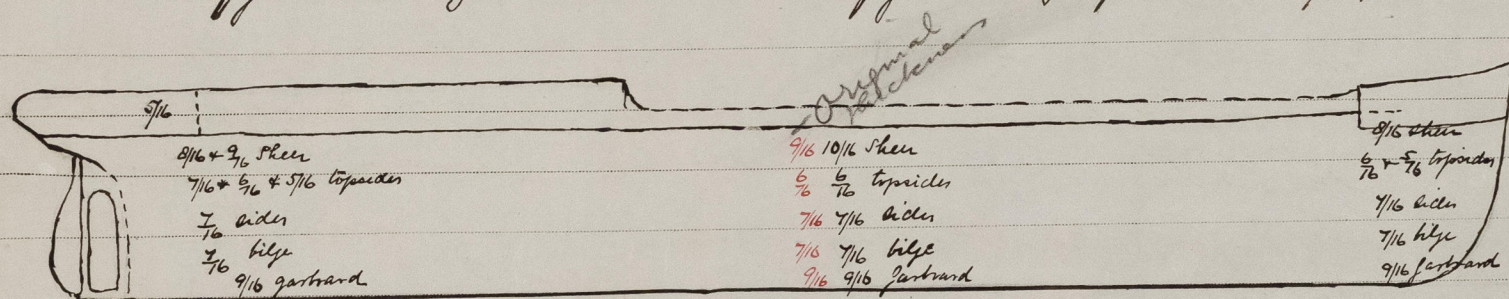 Original
thickness
5/16
8/16 & 9/16 Sheer
7/16 & 6/16 & 5/16 topsides
7/16 sides
7/16 bilge
9/16 garboard
9/16 10/16 Sheer
6/16 6/16 topsides
7/16 7/16 sides
7/16 7/16 bilge
9/16 9/16 garboard
8/16 sheer
6/16 & 5/16 topsides
7/16 sides
7/16 bilge
9/16 garboard